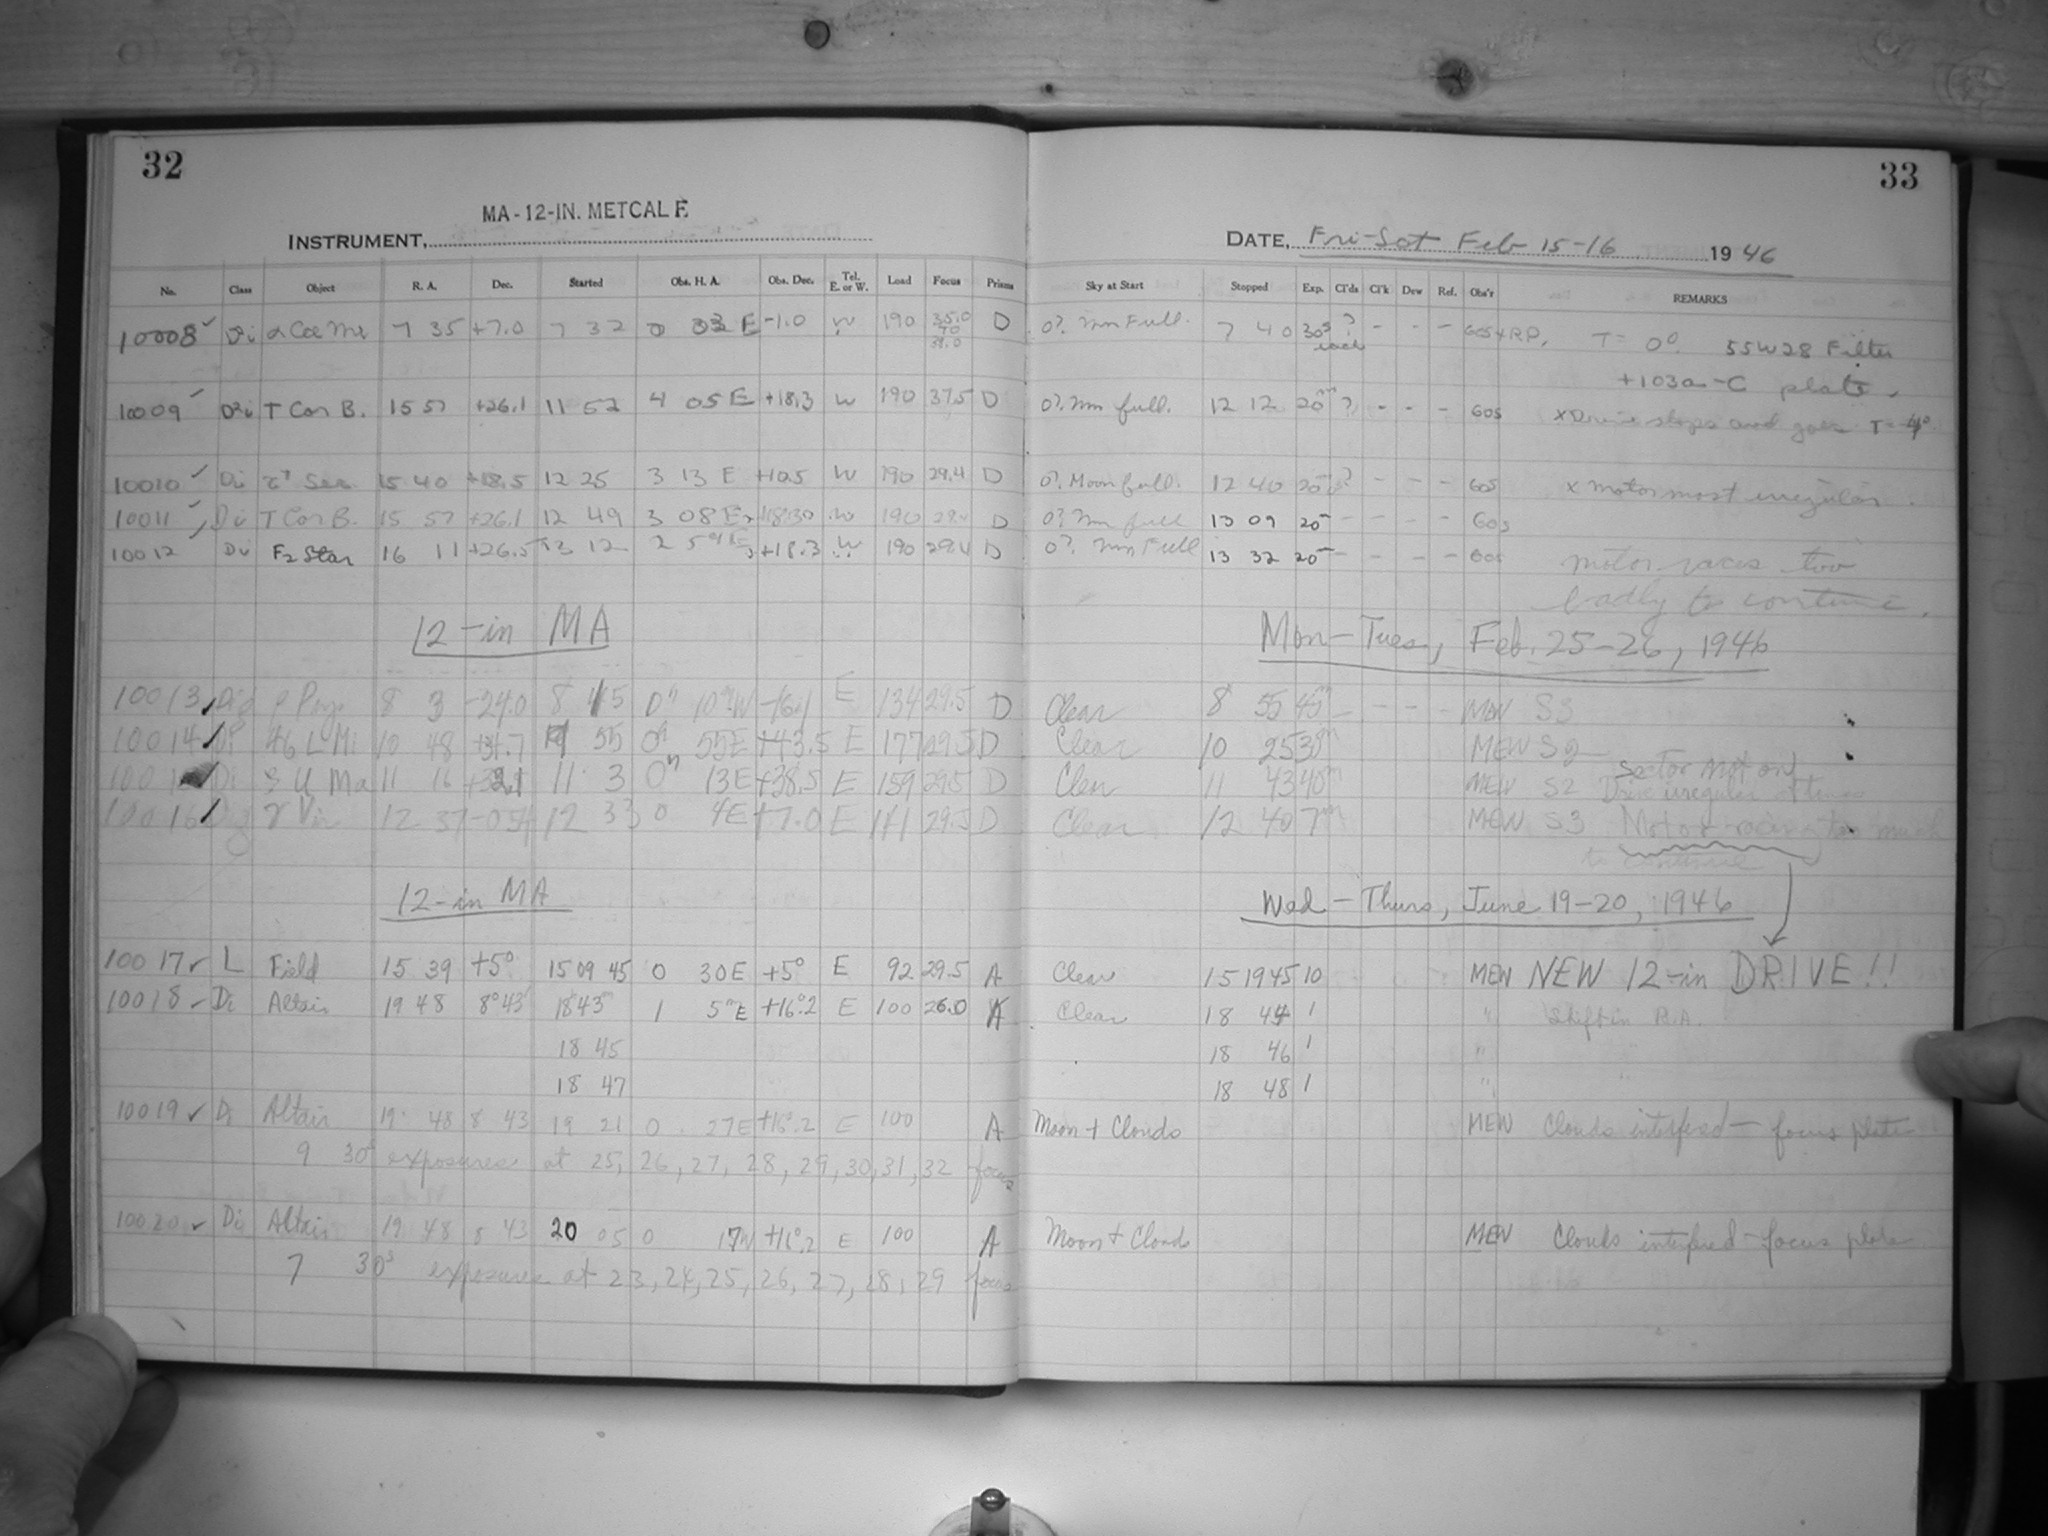 32
33
MA-12-IN. METCALF
INSTRUMENT,
DATE, Fri-Sat Feb 15-16 1946
No. Class Object R. A. Dec. Started Obs. H. A. Obs. Dec. Tel. E. or W. Load Focus Prisms Sky at Start Stopped Exp. Cl'ds Cl'k Dew Ref. Obs'r REMARKS
10008 ✓ Di 7 35 +7.0 7 32 0 03 E -1.0 W 190 35.0 to 39.0 D 0?. Mn Full. 7 40 30s each ? - - - GOS+RP. T = 0°. 55W28 Filter
+103a-C plate.
10009 ✓ T Cor B. 15 57 +26.1 11 52 4 05 E +18.3 W 190 37.5 D 0?. Mn full. 12 12 20m ? - - - GOS x Drive stops and goes T=-4°
10010 ✓ Di Ser. 15 40 +18.5 12 25 3 13 E +10.5 W 190 29.4 D 0?. Moon full. 12 40 ? - - - GOS x motor most irregular.
10011 ✓ Di T Cor B. 15 57 +26.1 12 49 3 08 E W 190 29.4 D 0? Mn full 13 09 20 - - - - GOS
10012 Di F2 Star 16 11 +26.5 13 12 2 59 E +18.3 W 190 29.4 D 0?. Mn Full 13 32 20 - - - - GOS motor races too
badly to continue.
12-in MA Mon-Tues, Feb. 25-26, 1946
10013 8 3 -24.0 8 15 0h 10m W -16.1 E 134 29.5 D Clear 8 55 45m - - - - MEW S3
10014 46 L Mi 10 48 +34.7 55 0h 55 E +43.5 E 177 29.5 D Clear 10 25 30m MEW S2
Sector not on
Di U Ma 11 16 11 3 0h 13 E +38.5 E 159 29.5 D Clear 11 43 40m MEW S2 Drive irregular at times
10016 γ Vir 12 37 12 33 0 4 E +7.0 E 141 29.5 D Clear 12 40 7m MEW S3 Motor racing too much
to continue
12-in MA Wed-Thurs, June 19-20, 1946
10017 ✓ L Field 15 39 +5° 15 09 45 0 30 E +5° E 92 29.5 A Clear 15 19 45 10 MEW NEW 12-in DRIVE!!
10018 ✓ Di Altair 19 48 8° 43' 18h 43m 1 5m E +16°.2 E 100 26.0 A Clear 18 44 1 " Shift in R.A.
18 45 18 46 1 "
18 47 18 48 1 "
10019 ✓ Di Altair 19 48 8 43 19 21 0 27 E +16°.2 E 100 A Moon + Clouds MEW Clouds interfered - focus plate
9 30s exposures at 25, 26, 27, 28, 29, 30, 31, 32 focus
10020 ✓ Di Altair 19 48 8 43 20 05 0 17 W +16°.2 E 100 A Moon + Clouds MEW Clouds interfered - focus plate
7 30s exposures at 23, 24, 25, 26, 27, 28, 29 focus